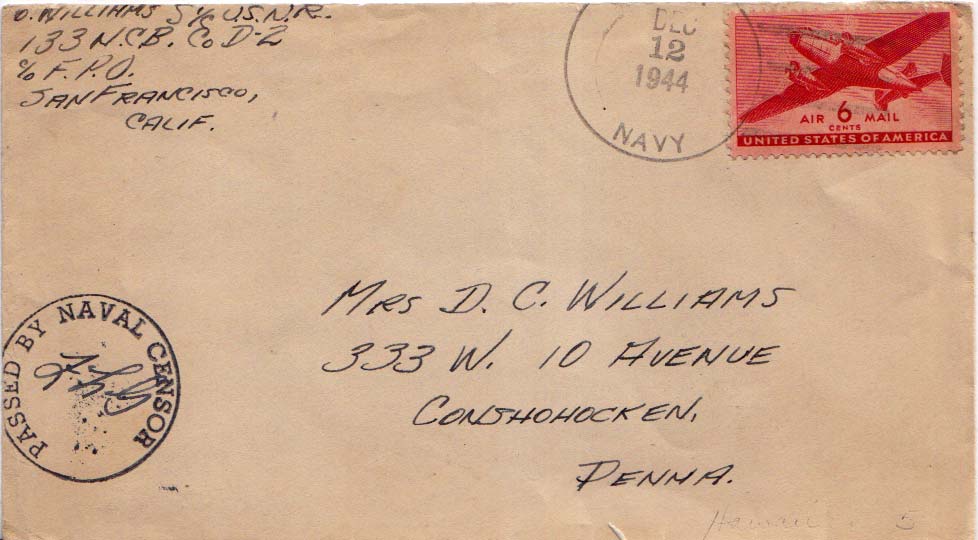 D. WILLIAMS S 1/C U.S.N.R.
133 N.C.B. Co D-2
℅ F.P.O.
SAN FRANCISCO,
CALIF.
DEC
12
1944
NAVY
AIR 6 MAIL
CENTS
UNITED STATES OF AMERICA
PASSED BY NAVAL CENSOR
MRS D. C. WILLIAMS
333 W. 10 AVENUE
CONSHOHOCKEN,
PENNA.
Hawaii 5